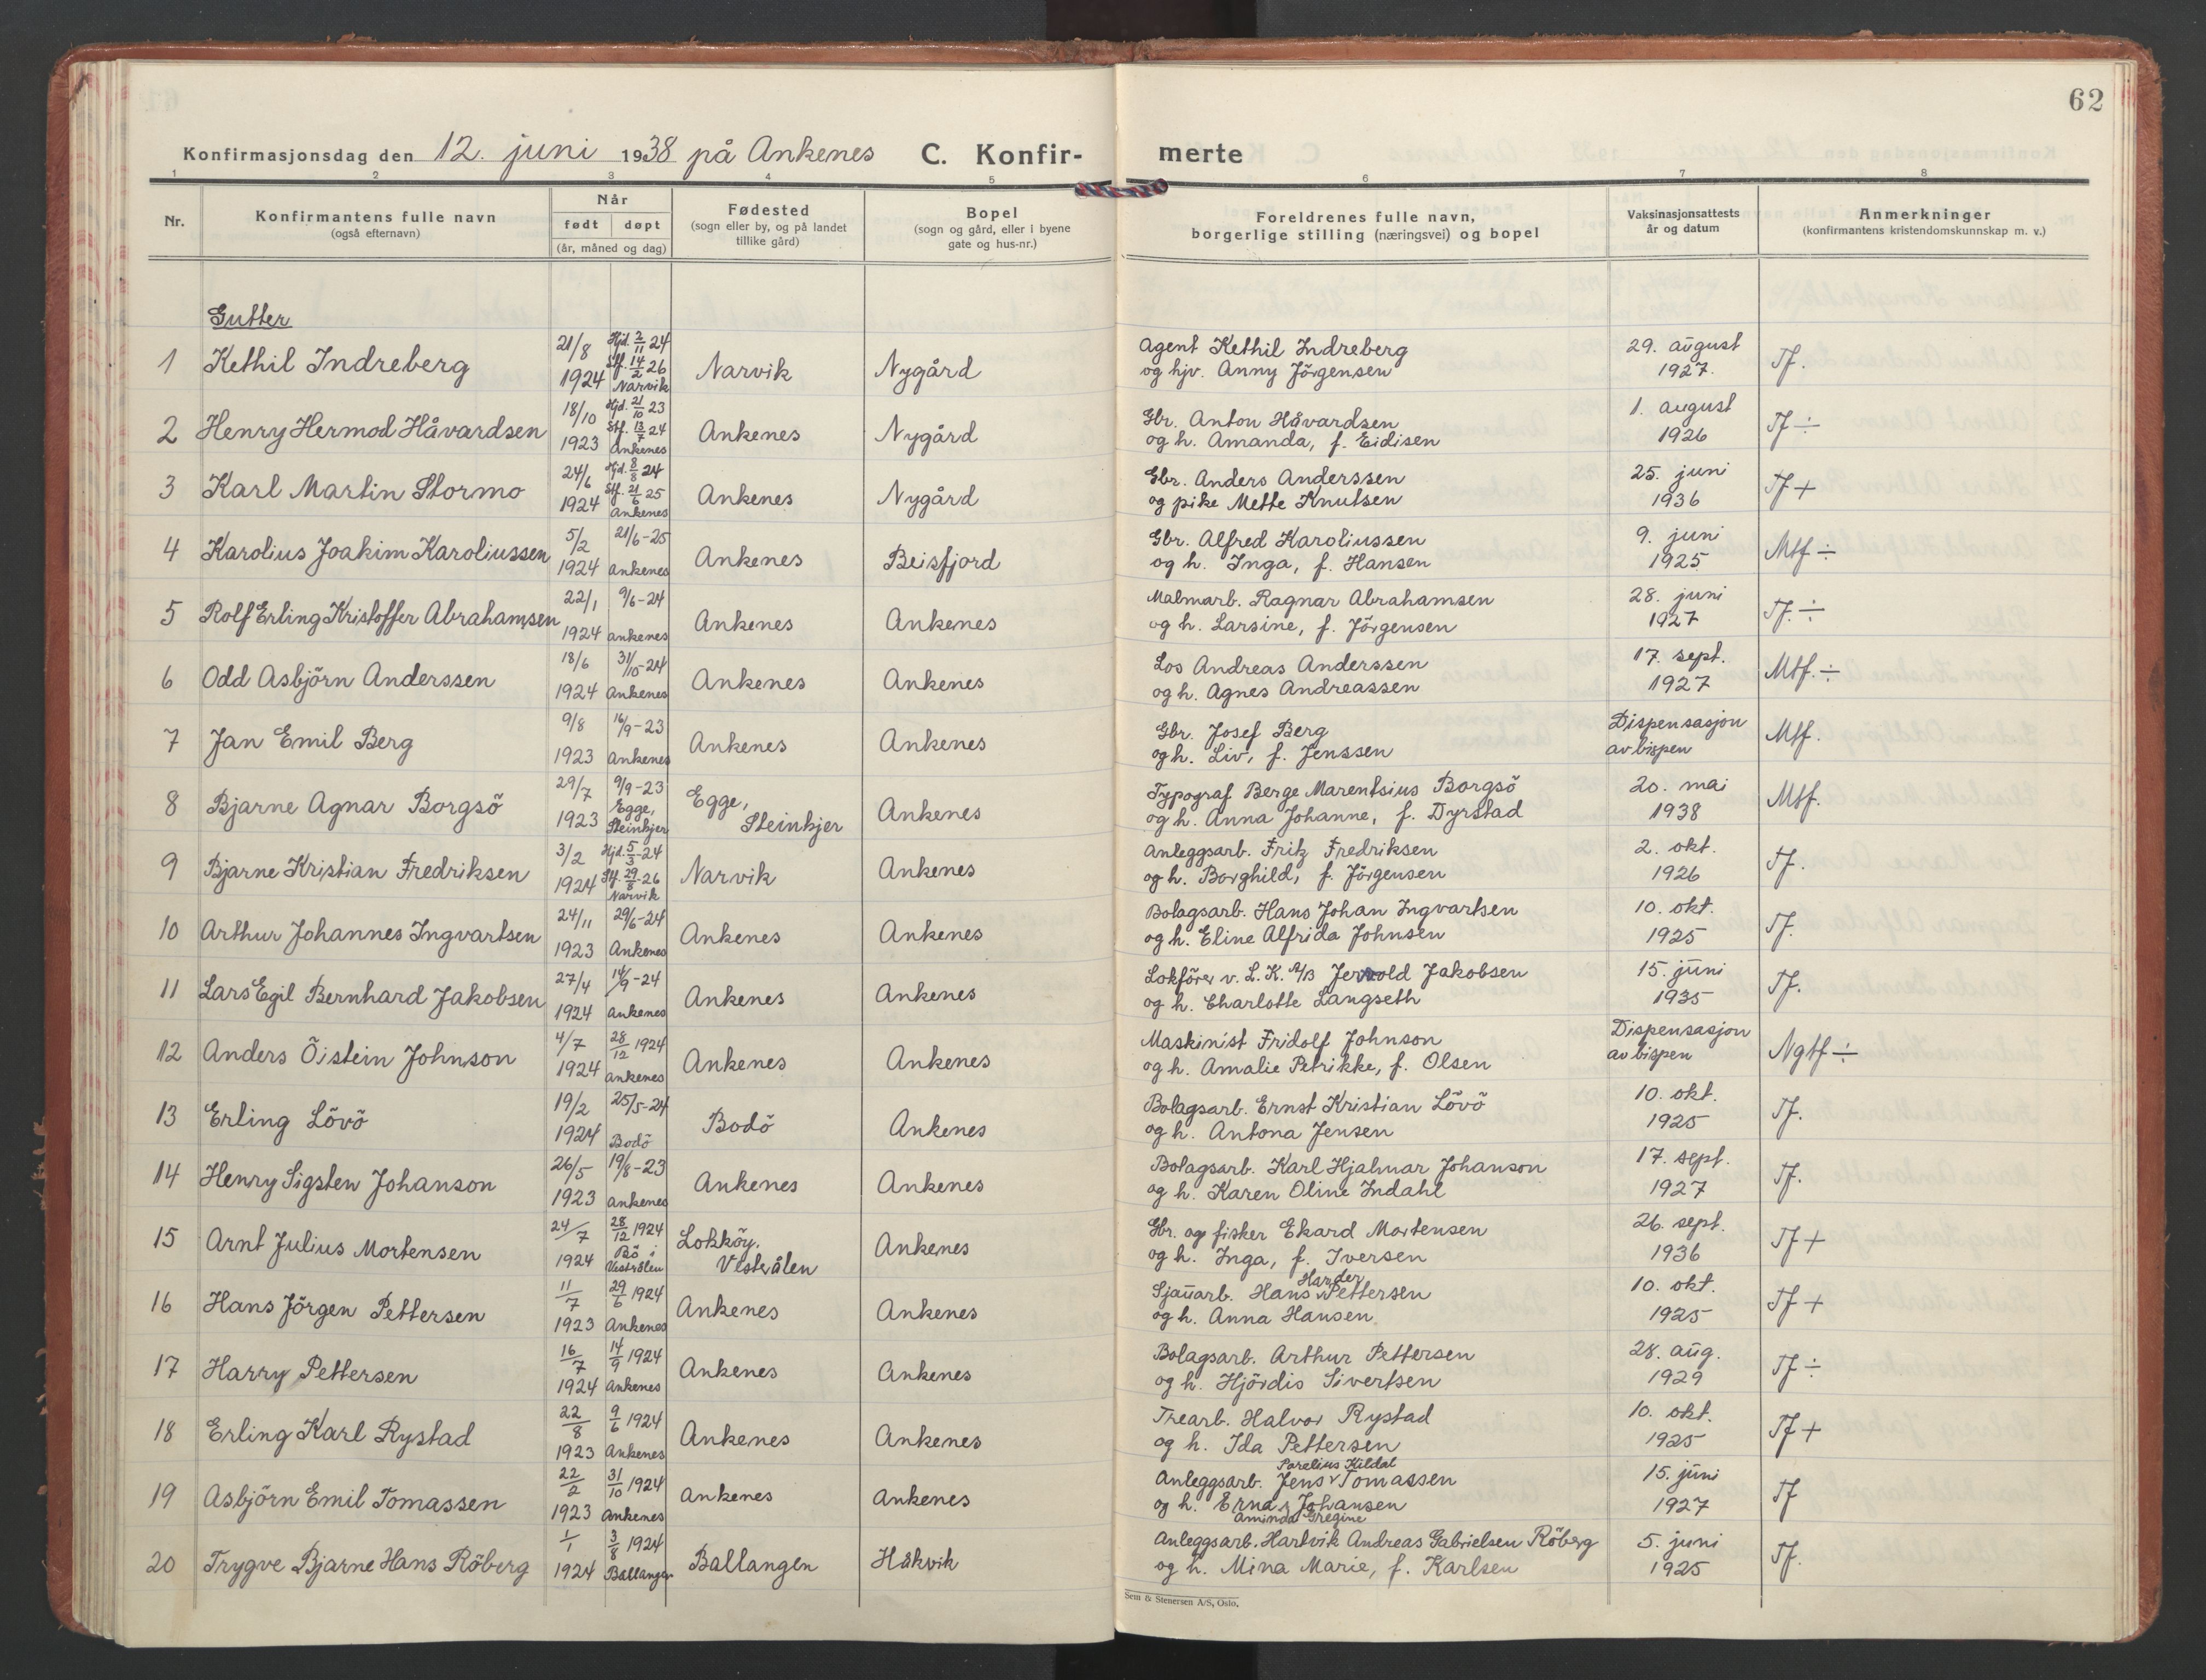 62
Konfirmasjonsdag den 12. juni 1938 på Ankenes C. Konfir- merte
1 2 3 4 5 6 7 8
Nr.
Konfirmantens fulle navn
(også efternavn)
Når
født døpt
(år, måned og dag)
Fødested
(sogn eller by, og på landet
tillike gård)
Bopel
(sogn og gård, eller i byene
gate og hus-nr.)
Foreldrenes fulle navn,
borgerlige stilling (næringsvei) og bopel
Vaksinasjonsattests
år og datum
Anmerkninger
(konfirmantens kristendomskunnskap m. v.)
Gutter
1 Kethil Indreberg 21/8 1924 Hjd. 2/11 24 Stf. 14/2 26 Narvik Narvik Nygård Agent Kethil Indreberg og hjv. Anny Jörgensen 29. august 1927. Tf.
2 Henry Hermod Håvardsen 18/10 1923 Hjd. 21/10 23 Stf. 13/7 24 Ankenes Ankenes Nygård Gbr. Anton Håvardsen og h. Amanda, f. Eidisen 1. august 1926 Tf ÷
3 Karl Martin Stormo 24/6 1924 Hjd. 8/8 24 Stf. 21/6 25 Ankenes Ankenes Nygård Gbr. Anders Anderssen og pike Mette Knutsen 25. juni 1936 Tf +
4 Karolius Joakim Karoliussen 5/2 1924 21/6-25 Ankenes Ankenes Beisfjord Gbr. Alfred Karoliussen og h. Inga, f. Hansen 9. juni 1925 Mtf ÷
5 Rolf Erling Kristoffer Abrahamsen 22/1 1924 9/6-24 Ankenes Ankenes Ankenes Malmarb. Ragnar Abrahamsen og h. Larsine, f. Jörgensen 28. juni 1927 Tf. ÷
6 Odd Asbjörn Anderssen 18/6 1924 31/10-24 Ankenes Ankenes Ankenes Los Andreas Anderssen og h. Agnes Andreassen 17. sept. 1927 Mtf. ÷
7 Jan Emil Berg 9/8 1923 16/9-23 Ankenes Ankenes Ankenes Gbr. Josef Berg og h. Liv, f. Jenssen Dispensasjon av bispen Mtf.
8 Bjarne Agnar Borgsö 29/7 1923 9/9-23 Egge, Steinkjer Egge, Steinkjer Ankenes Typograf Berge Marentsius Borgsö og h. Anna Johanne, f. Dyrstad 20. mai 1938 Mtf.
9 Bjarne Kristian Fredriksen 3/2 1924 Hjd. 5/3-24 Stf. 29/8-26 Narvik Narvik Ankenes Anleggsarb. Fritz Fredriksen og h. Borghild, f. Jörgensen 2. okt. 1926 Tf.
10 Arthur Johannes Ingvartsen 24/11 1923 29/6-24 Ankenes Ankenes Ankenes Bolagsarb. Hans Johan Ingvartsen og h. Eline Alfrida Johnsen 10. okt. 1925 Tf.
11 Lars Egil Bernhard Jakobsen 27/4 1924 14/9-24 Ankenes Ankenes Ankenes Lokförer v. L. K. A/B Jakobsen og h. Charlotte Langseth 15. juni 1935 Tf.
12 Anders Öistein Johnson 4/7 1924 28/12 1924 Ankenes Ankenes Ankenes Maskinist Fridolf Johnson og h. Amalie Petrikke, f. Olsen Dispensasjon av bispen Ngtf ÷
13 Erling Lövö 19/2 1924 25/5-24 Bodö Bodö Ankenes Bolagsarb. Ernst Kristian Lövö og h. Antona Jensen 10. okt. 1925 Tf.
14 Henry Sigsten Johanson 26/5 1923 19/8-23 Ankenes Ankenes Ankenes Bolagsarb. Karl Hjalmar Johanson og h. Karen Oline Indahl 17. sept. 1927 Tf.
15 Arnt Julius Mortensen 24/7 1924 28/12 1924 Bö i Vesterålen Lokköy. Vesterålen Ankenes Gbr. og fisker Ekard Mortensen og h. Inga, f. Iversen 26. sept. 1936 Tf +
16 Hans Jörgen Pettersen 11/7 1923 29/6 1924 Ankenes Ankenes Ankenes Sjauarb. Hans Harder Pettersen og h. Anna Hansen 10. okt. 1925 Tf +
17 Harry Pettersen 16/7 1924 14/9 1924 Ankenes Ankenes Ankenes Bolagsarb. Arthur Pettersen og h. Hjördis Sivertsen 28. aug. 1929 Tf ÷
18 Erling Karl Rystad 22/8 1923 9/6 1924 Ankenes Ankenes Ankenes Trearb. Halvor Rystad og h. Ida Pettersen 10. okt. 1925 Tf +
19 Asbjörn Emil Tomassen 22/2 1923 31/10 1924 Ankenes Ankenes Ankenes Anleggsarb. Jens Parelius Kildal Tomassen og h. Erna Aminda Gregine Johansen 15. juni 1927 Tf
20 Trygve Bjarne Hans Röberg 1/1 1924 3/8 1924 Ballangen Ballangen Håkvik Anleggsarb. Hartvik Andreas Gabrielsen Röberg og h. Mina Marie, f. Karlsen 5. juni 1925 Tf.
Sem & Stenersen A/S, Oslo.